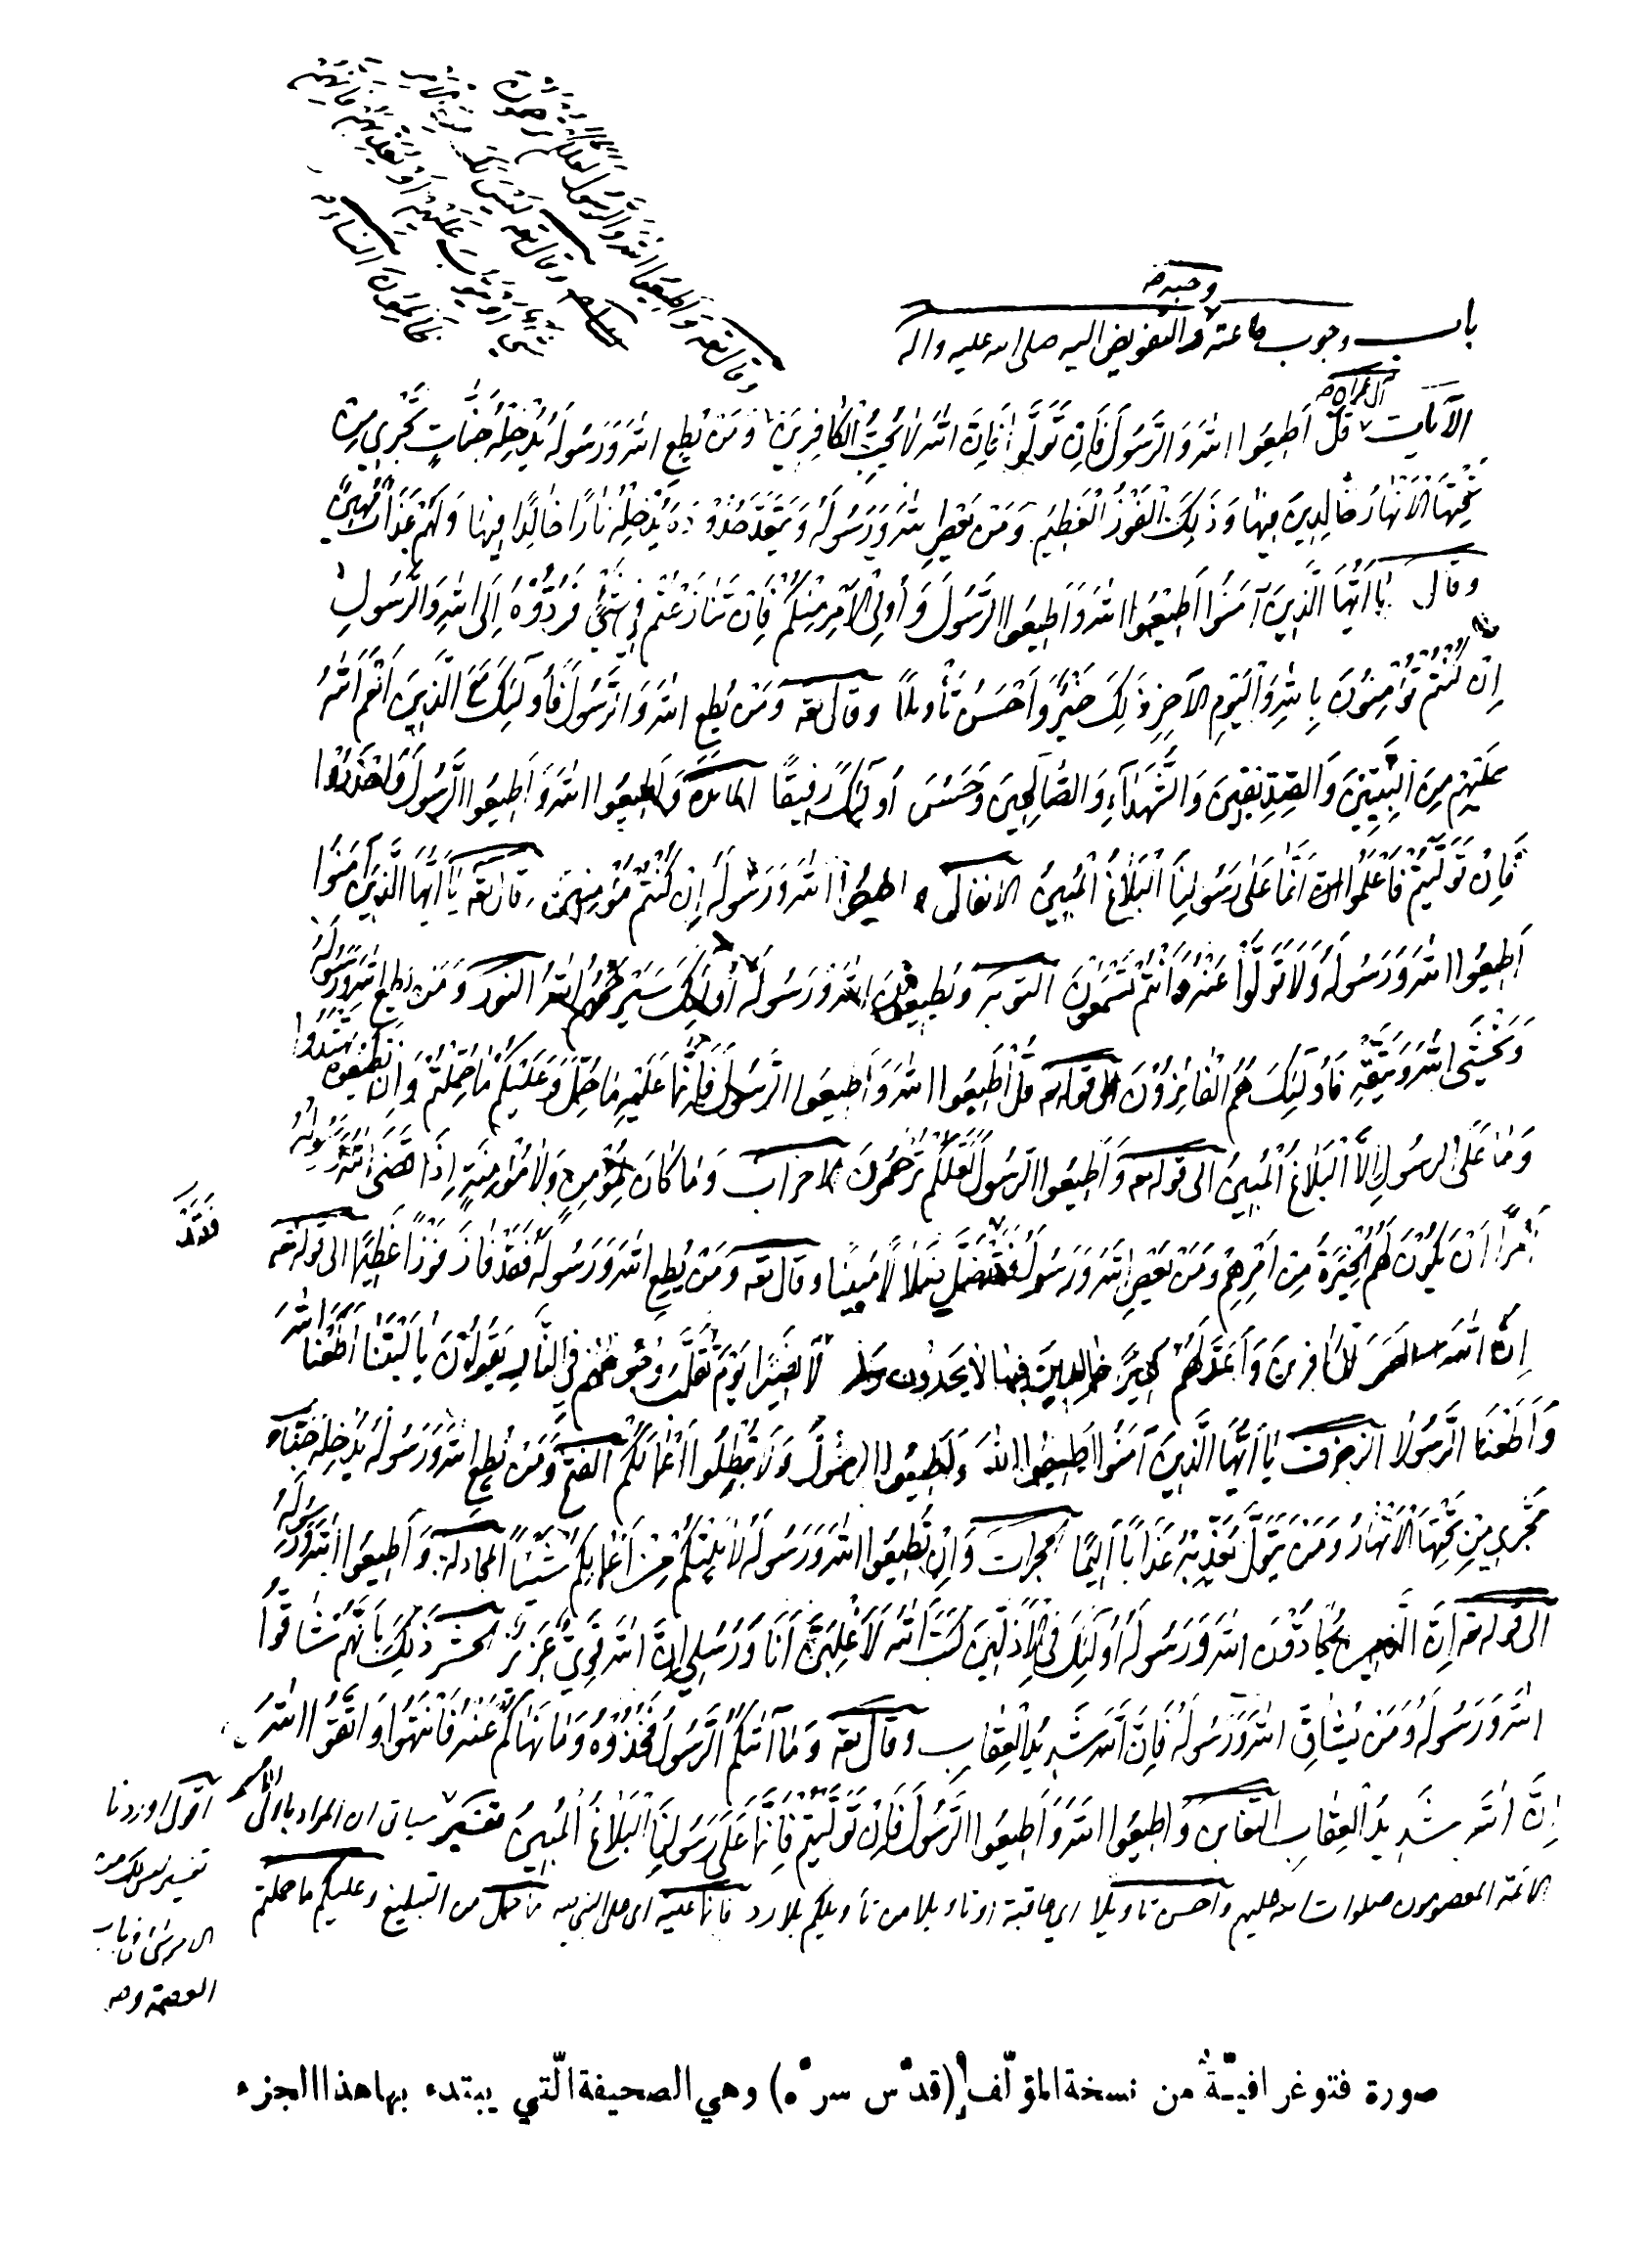 وقال تعه وَاَطيعُوا اللهَ وَالرَّسُولَ لَعَلَّكُمْ تُرْحَمُونَ
وقال تعه لَيْسَ لَكَ مِنَ الْاَمْرِ
شَيْءٌ اَوْ يَتُوبَ عَلَيْهِمْ اَوْ يُعَذِّبَهُمْ فَاِنَّهُمْ
ظَالِمُونَ النساء
وحبه صه
باب وجوب طاعته والتفويض اليه صلى الله عليه واله
آل عمران
الآيات قُلْ اَطيعُوا اللهَ وَالرَّسُولَ فَاِنْ تَوَلَّوْا فَاِنَّ اللهَ لا يُحِبُّ الْكافِرينَ وَمَنْ يُطِعِ اللهَ وَرَسُولَهُ يُدْخِلْهُ جَنّاتٍ تَجْري مِنْ
تَحْتِهَا الْاَنْهارُ خالِدينَ فيها وَذلِكَ الْفَوْزُ الْعَظيمُ وَمَنْ يَعْصِ اللهَ وَرَسُولَهُ وَيَتَعَدَّ حُدُودَهُ يُدْخِلْهُ نارًا خالِدًا فيها وَلَهُ عَذابٌ مُهينٌ
وقال يا اَيُّهَا الَّذينَ آمَنُوا اَطيعُوا اللهَ وَاَطيعُوا الرَّسُولَ وَاُولِي الْاَمْرِ مِنْكُمْ فَاِنْ تَنازَعْتُمْ في شَيْءٍ فَرُدُّوهُ اِلَى اللهِ وَالرَّسُولِ
اِنْ كُنْتُمْ تُؤْمِنُونَ بِاللهِ وَالْيَوْمِ الْآخِرِ ذلِكَ خَيْرٌ وَاَحْسَنُ تَأْويلًا وقال تعه وَمَنْ يُطِعِ اللهَ وَالرَّسُولَ فَاُولئِكَ مَعَ الَّذينَ اَنْعَمَ اللهُ
عَلَيْهِمْ مِنَ النَّبِيّينَ وَالصِّدّيقينَ وَالشُّهَداءِ وَالصّالِحينَ وَحَسُنَ اُولئِكَ رَفيقًا المائدة وَاَطيعُوا اللهَ وَاَطيعُوا الرَّسُولَ وَاحْذَرُوا
فَاِنْ تَوَلَّيْتُمْ فَاعْلَمُوا اَنَّما عَلى رَسُولِنَا الْبَلاغُ الْمُبينُ الانفال و اطيعُوا اللهَ وَرَسُولَهُ اِنْ كُنْتُمْ مُؤْمِنينَ وقال تعه يا اَيُّهَا الَّذينَ آمَنُوا
اَطيعُوا اللهَ وَرَسُولَهُ وَلا تَوَلَّوْا عَنْهُ وَاَنْتُمْ تَسْمَعُونَ التوبة وَيُطيعُونَ اللهَ وَرَسُولَهُ اُولئِكَ سَيَرْحَمُهُمُ اللهُ النور وَمَنْ يُطِعِ اللهَ وَرَسُولَهُ
وَيَخْشَى اللهَ وَيَتَّقْهِ فَاُولئِكَ هُمُ الْفائِزُونَ الى قوله تعه قُلْ اَطيعُوا اللهَ وَاَطيعُوا الرَّسُولَ فَاِنْ تَوَلَّوْا فَاِنَّما عَلَيْهِ ما حُمِّلَ وَعَلَيْكُمْ ما حُمِّلْتُمْ وَاِنْ تُطيعُوهُ تَهْتَدُوا
وَما عَلَى الرَّسُولِ اِلَّا الْبَلاغُ الْمُبينُ الى قوله تعه وَاَطيعُوا الرَّسُولَ لَعَلَّكُمْ تُرْحَمُونَ الاحزاب وَما كانَ لِمُؤْمِنٍ وَلا مُؤْمِنَةٍ اِذا قَضَى اللهُ وَرَسُولُهُ
اَمْرًا اَنْ يَكُونَ لَهُمُ الْخِيَرَةُ مِنْ اَمْرِهِمْ وَمَنْ يَعْصِ اللهَ وَرَسُولَهُ فَقَدْ ضَلَّ ضَلالًا مُبينًا وقال تعه وَمَنْ يُطِعِ اللهَ وَرَسُولَهُ فَقَدْ فازَ فَوْزًا عَظيمًا الى قوله تعه
فَقَدْ
اِنَّ اللهَ لَعَنَ الْكافِرينَ وَاَعَدَّ لَهُمْ سَعيرًا خالِدينَ فيها لا يَجِدُونَ وَلِيًّا وَلا نَصيرًا يَوْمَ تُقَلَّبُ وُجُوهُهُمْ فِي النّارِ يَقُولُونَ يا لَيْتَنا اَطَعْنَا اللهَ
وَاَطَعْنَا الرَّسُولا الزخرف يا اَيُّهَا الَّذينَ آمَنُوا اَطيعُوا اللهَ وَاَطيعُوا الرَّسُولَ وَلا تُبْطِلُوا اَعْمالَكُمْ الفتح وَمَنْ يُطِعِ اللهَ وَرَسُولَهُ يُدْخِلْهُ جَنّاتٍ
تَجْري مِنْ تَحْتِهَا الْاَنْهارُ وَمَنْ يَتَوَلَّ يُعَذِّبْهُ عَذابًا اَليمًا الحجرات وَاِنْ تُطيعُوا اللهَ وَرَسُولَهُ لا يَلِتْكُمْ مِنْ اَعْمالِكُمْ شَيْئًا المجادلة وَاَطيعُوا اللهَ وَرَسُولَهُ
الى قوله تعه اِنَّ الَّذينَ يُحادُّونَ اللهَ وَرَسُولَهُ اُولئِكَ فِي الْاَذَلّينَ كَتَبَ اللهُ لَاَغْلِبَنَّ اَنَا وَرُسُلي اِنَّ اللهَ قَوِيٌّ عَزيزٌ الحشر ذلِكَ بِاَنَّهُمْ شاقُّوا
اللهَ وَرَسُولَهُ وَمَنْ يُشاقِّ اللهَ وَرَسُولَهُ فَاِنَّ اللهَ شَديدُ الْعِقابِ وقال تعه وَما آتاكُمُ الرَّسُولُ فَخُذُوهُ وَما نَهاكُمْ عَنْهُ فَانْتَهُوا وَاتَّقُوا اللهَ
اِنَّ اللهَ شَديدُ الْعِقابِ التغابن وَاَطيعُوا اللهَ وَاَطيعُوا الرَّسُولَ فَاِنْ تَوَلَّيْتُمْ فَاِنَّما عَلى رَسُولِنَا الْبَلاغُ الْمُبينُ تفسير سياتى ان المراد باولى الامر
الائمة المعصومون صلوات الله عليهم واحسن تاويلا اى عاقبة او تاويلا من تأويلكم بلا رد فانما عليه اى على النبى ما حمل من التبليغ وعليكم ما حملتم
اقول اوردنا
تفسير ليس لك من
الامر شئ فى باب
العصمة
صورة فتوغرافيّة من نسخة المؤلّف (قدّس سرّه) وهي الصحيفة الّتي يبتدء بها هذا الجزء